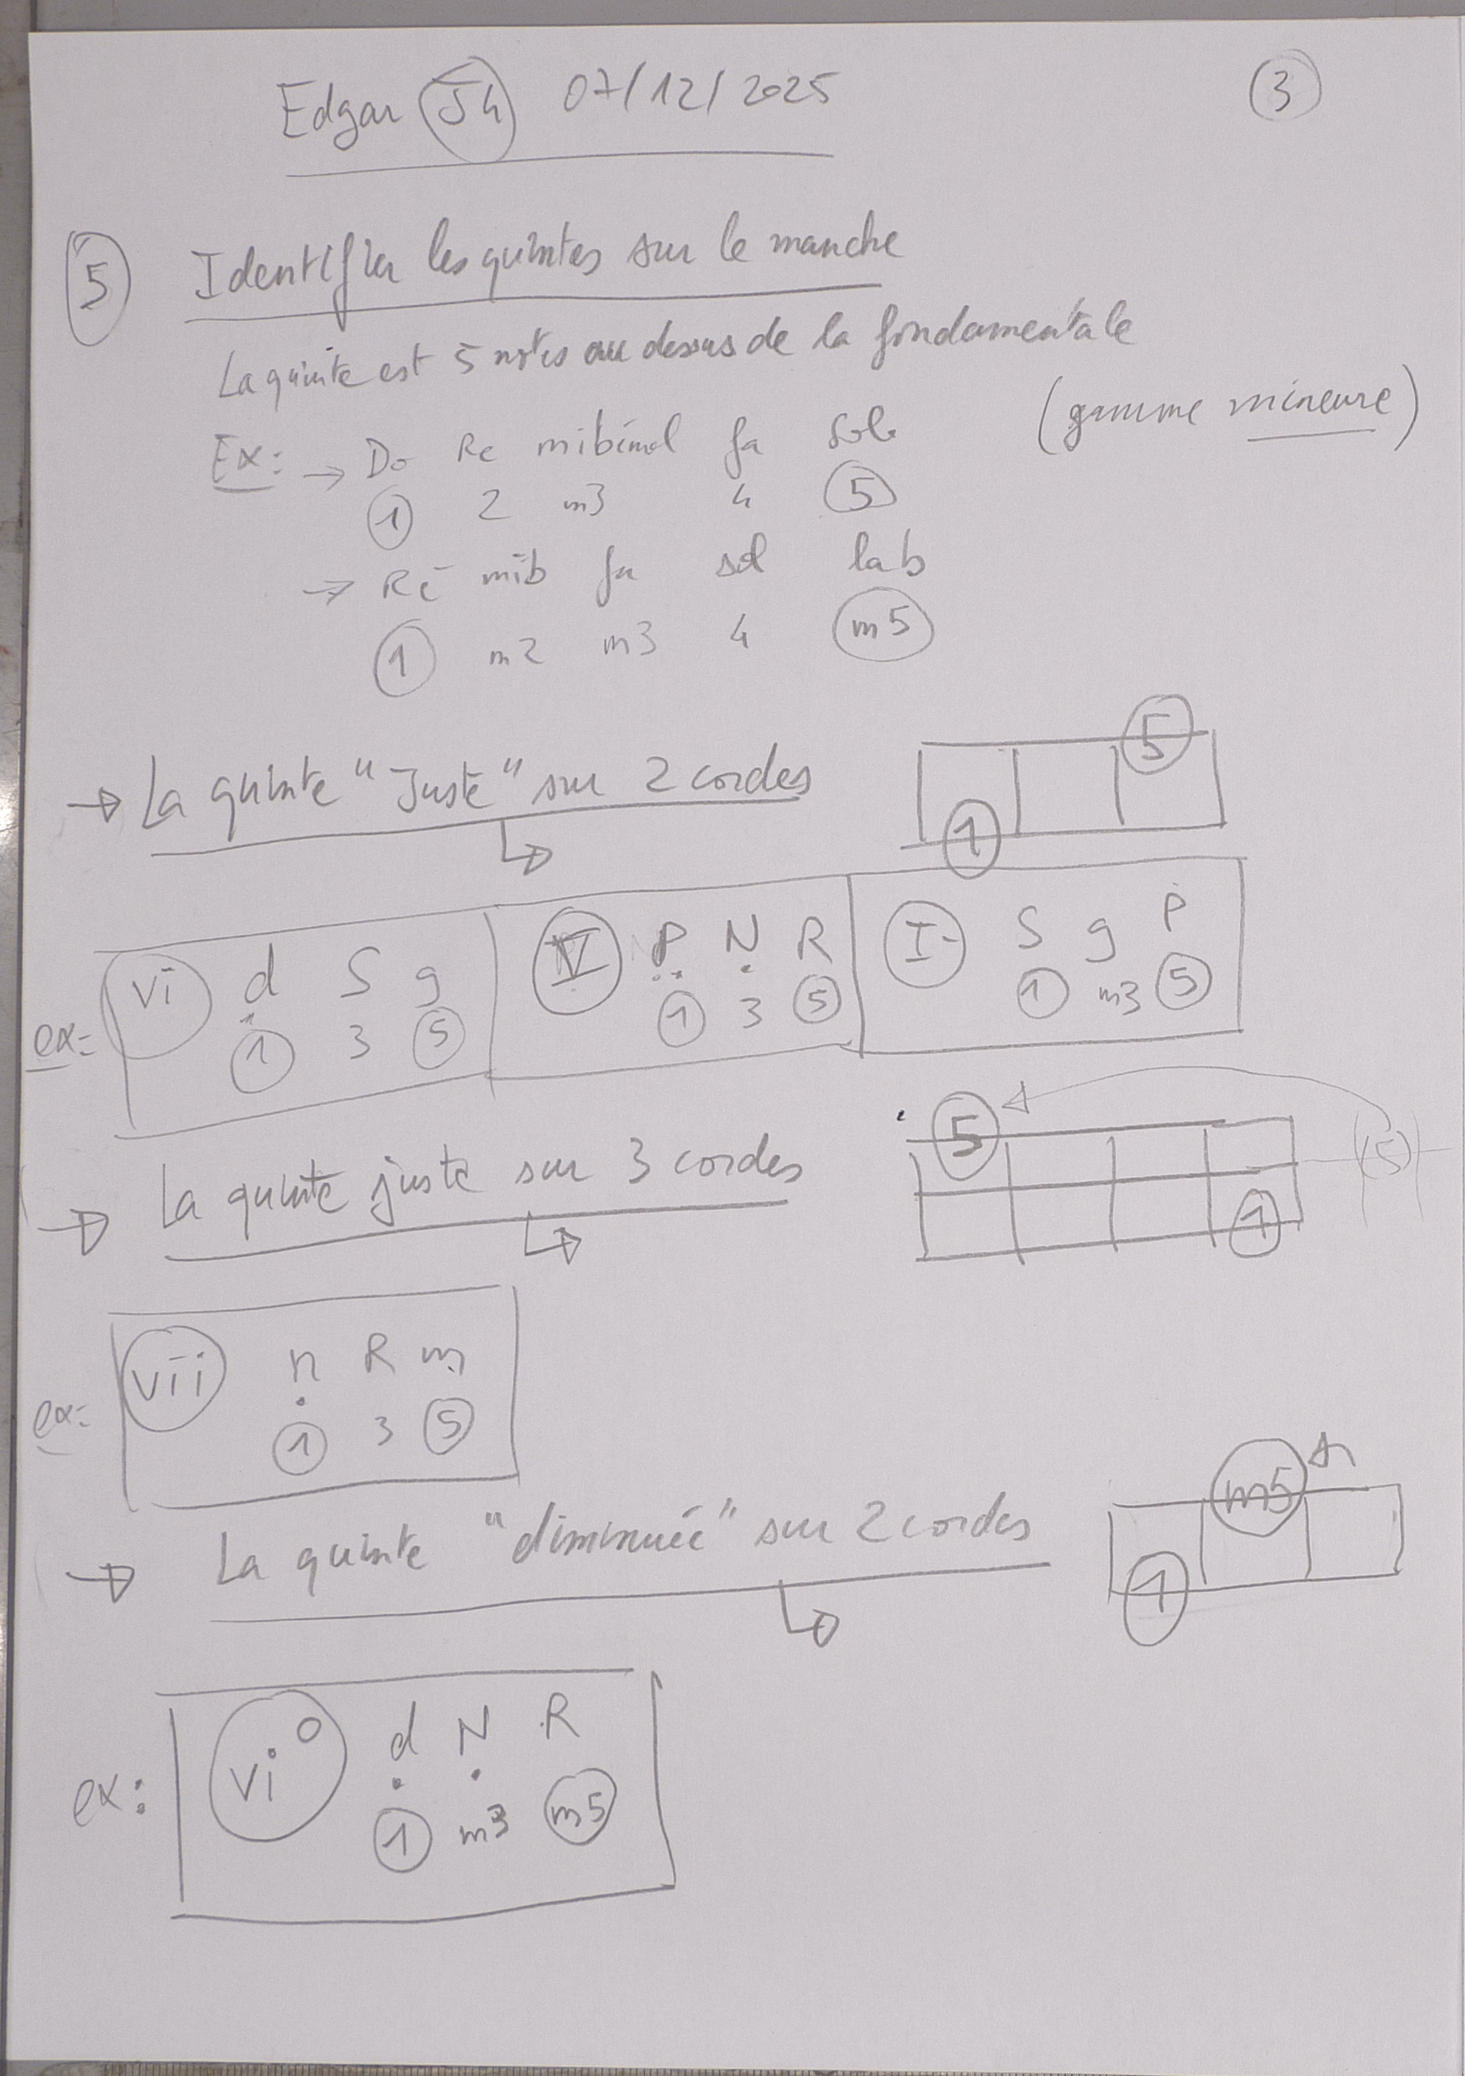 Edgar J4 07/12/2025
3
5 Identifier les quintes sur le manche
La quinte est 5 notes au dessus de la fondamentale
(gamme mineure)
Ex: → Do Re mi bémol fa sol
1 2 m3 4 5
→ Ré mib fa sol lab
1 m2 m3 4 m5
→ La quinte "Juste" sur 2 cordes
5
1
ex: vi d S g
1 3 5
V P N R
1 3 5
I- S g P
1 m3 5
→ La quinte juste sur 3 cordes
5
(5)
1
ex: vii n R m
1 3 5
→ La quinte "diminuée" sur 2 cordes
m5
1
ex: vi° d N R
1 m3 m5